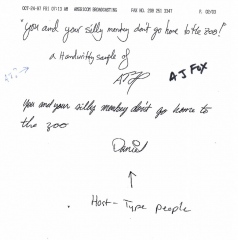 OCT-24-97 FRI 07:13 AM AMERICOM BROADCASTING FAX NO. P. 02/03
"you and your silly monkey don't go home to the zoo!"
a Handwriting sample of
AJ Fox
You and your silly monkey don't go home to
the zoo
Daniel
Host - Type people